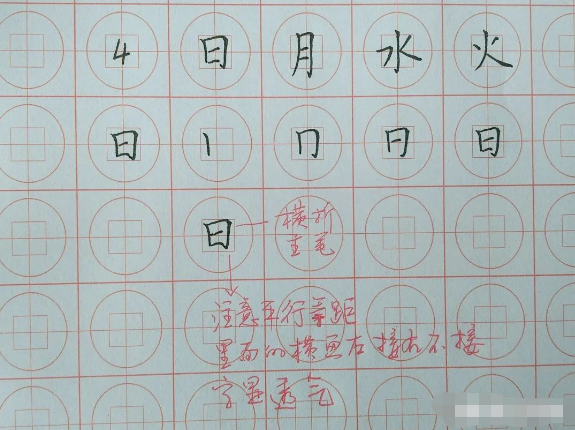 4 日 月 水 火
日 丨 𠃌 日 日
日 横折
主笔
注意平行等距
里面的横画左接右不接
字显透气